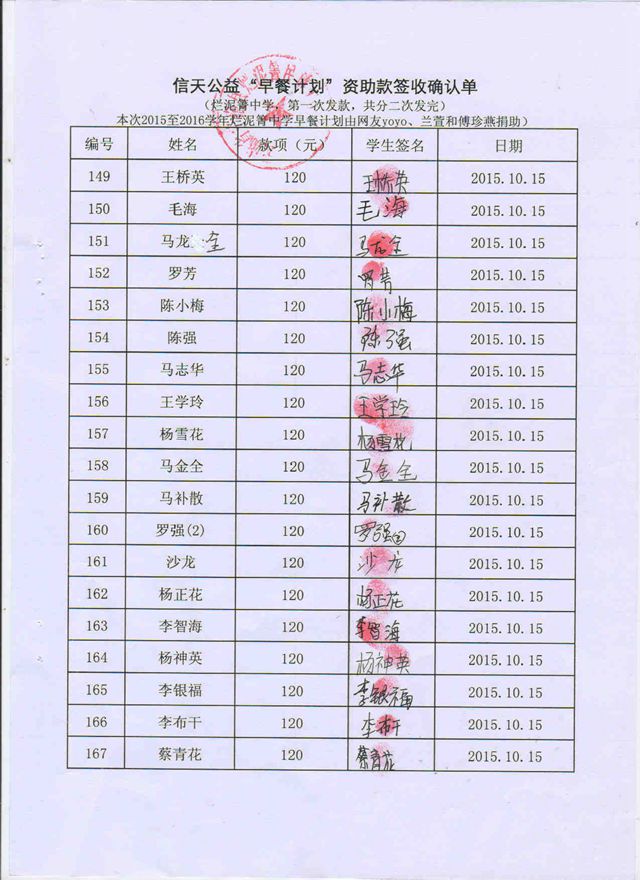 信天公益“早餐计划”资助款签收确认单
(烂泥箐中学，第一次发款，共分二次发完)
本次2015至2016学年烂泥箐中学早餐计划由网友yoyo、兰萱和傅珍燕捐助)
编号 姓名 款项（元） 学生签名 日期
149 王桥英 120 王桥英 2015.10.15
150 毛海 120 毛海 2015.10.15
151 马龙全 120 马龙全 2015.10.15
152 罗芳 120 罗芳 2015.10.15
153 陈小梅 120 陈小梅 2015.10.15
154 陈强 120 陈强 2015.10.15
155 马志华 120 马志华 2015.10.15
156 王学玲 120 王学玲 2015.10.15
157 杨雪花 120 杨雪花 2015.10.15
158 马金全 120 马金全 2015.10.15
159 马补散 120 马补散 2015.10.15
160 罗强(2) 120 罗强 2015.10.15
161 沙龙 120 沙龙 2015.10.15
162 杨正花 120 杨正花 2015.10.15
163 李智海 120 李智海 2015.10.15
164 杨神英 120 杨神英 2015.10.15
165 李银福 120 李银福 2015.10.15
166 李布干 120 李布干 2015.10.15
167 蔡青花 120 蔡青花 2015.10.15